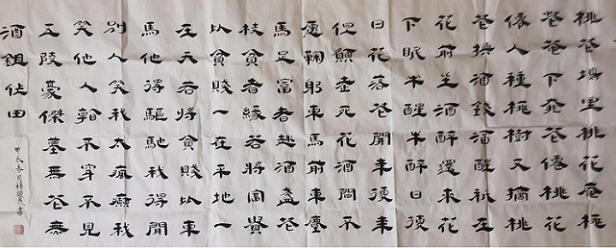 桃花塢里桃花庵桃
花庵下桃花僊桃花
僊人種桃樹又摘桃
花換酒錢酒醒祇在
花前坐酒醉還來花
下眠半醒半醉日復
日花落花開年復年
但願老死花酒間不
願鞠躬車馬前車塵
馬足富者趣酒盞花
枝貧者緣若將富貴
比貧賤一在平地一
在天若將貧賤比車
馬他得驅馳我得閒
別人笑我太瘋癲我
笑他人看不穿不見
五陵豪傑墓無花無
酒鉏作田
甲辰春月書